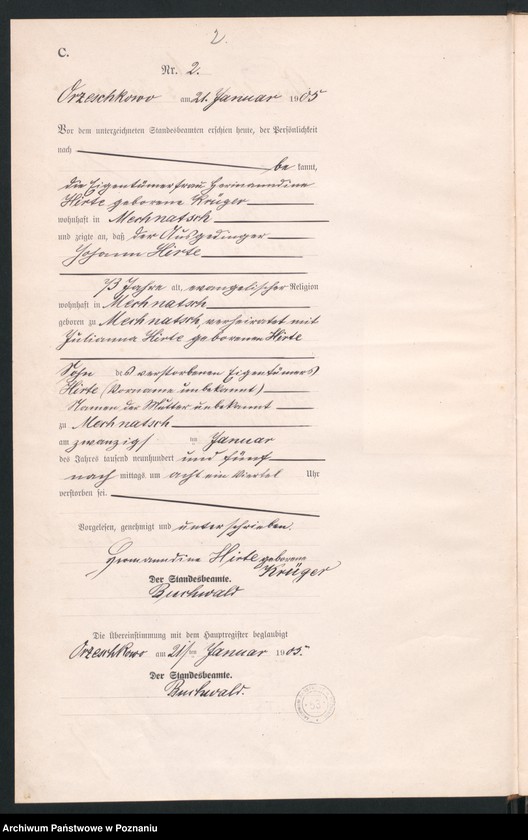 2.
C.
Nr. 2.
Orzeschkowo am 21. Januar 1905
Vor dem unterzeichneten Standesbeamten erschien heute, der Persönlichkeit
nach be kannt,
die Eigentümerfrau Hermanndine
Hirte geborene Krüger
wohnhaft in Mechnatsch
und zeigte an, daß der Ausgedinger
Johann Hirte
73 Jahre alt, evangelischer Religion
wohnhaft in Mechnatsch
geboren zu Mechnatsch, verheiratet mit
Julianna Hirte geborenen Hirte
Sohn des verstorbenen Eigentümers
Hirte (Vorname unbekannt)
Namen der Mutter unbekannt
zu Mechnatsch
am zwanzigsten Januar
des Jahres tausend neunhundert und fünf
nach mittags um acht ein Viertel Uhr
verstorben sei.
Vorgelesen, genehmigt und unterschrieben.
Hermanndine Hirte geborene
Krüger
Der Standesbeamte.
Buchwald
Die Übereinstimmung mit dem Hauptregister beglaubigt
Orzeschkowo am 21ten Januar 1905.
Der Standesbeamte.
Buchwald.
Archiwum Państwowe w Poznaniu